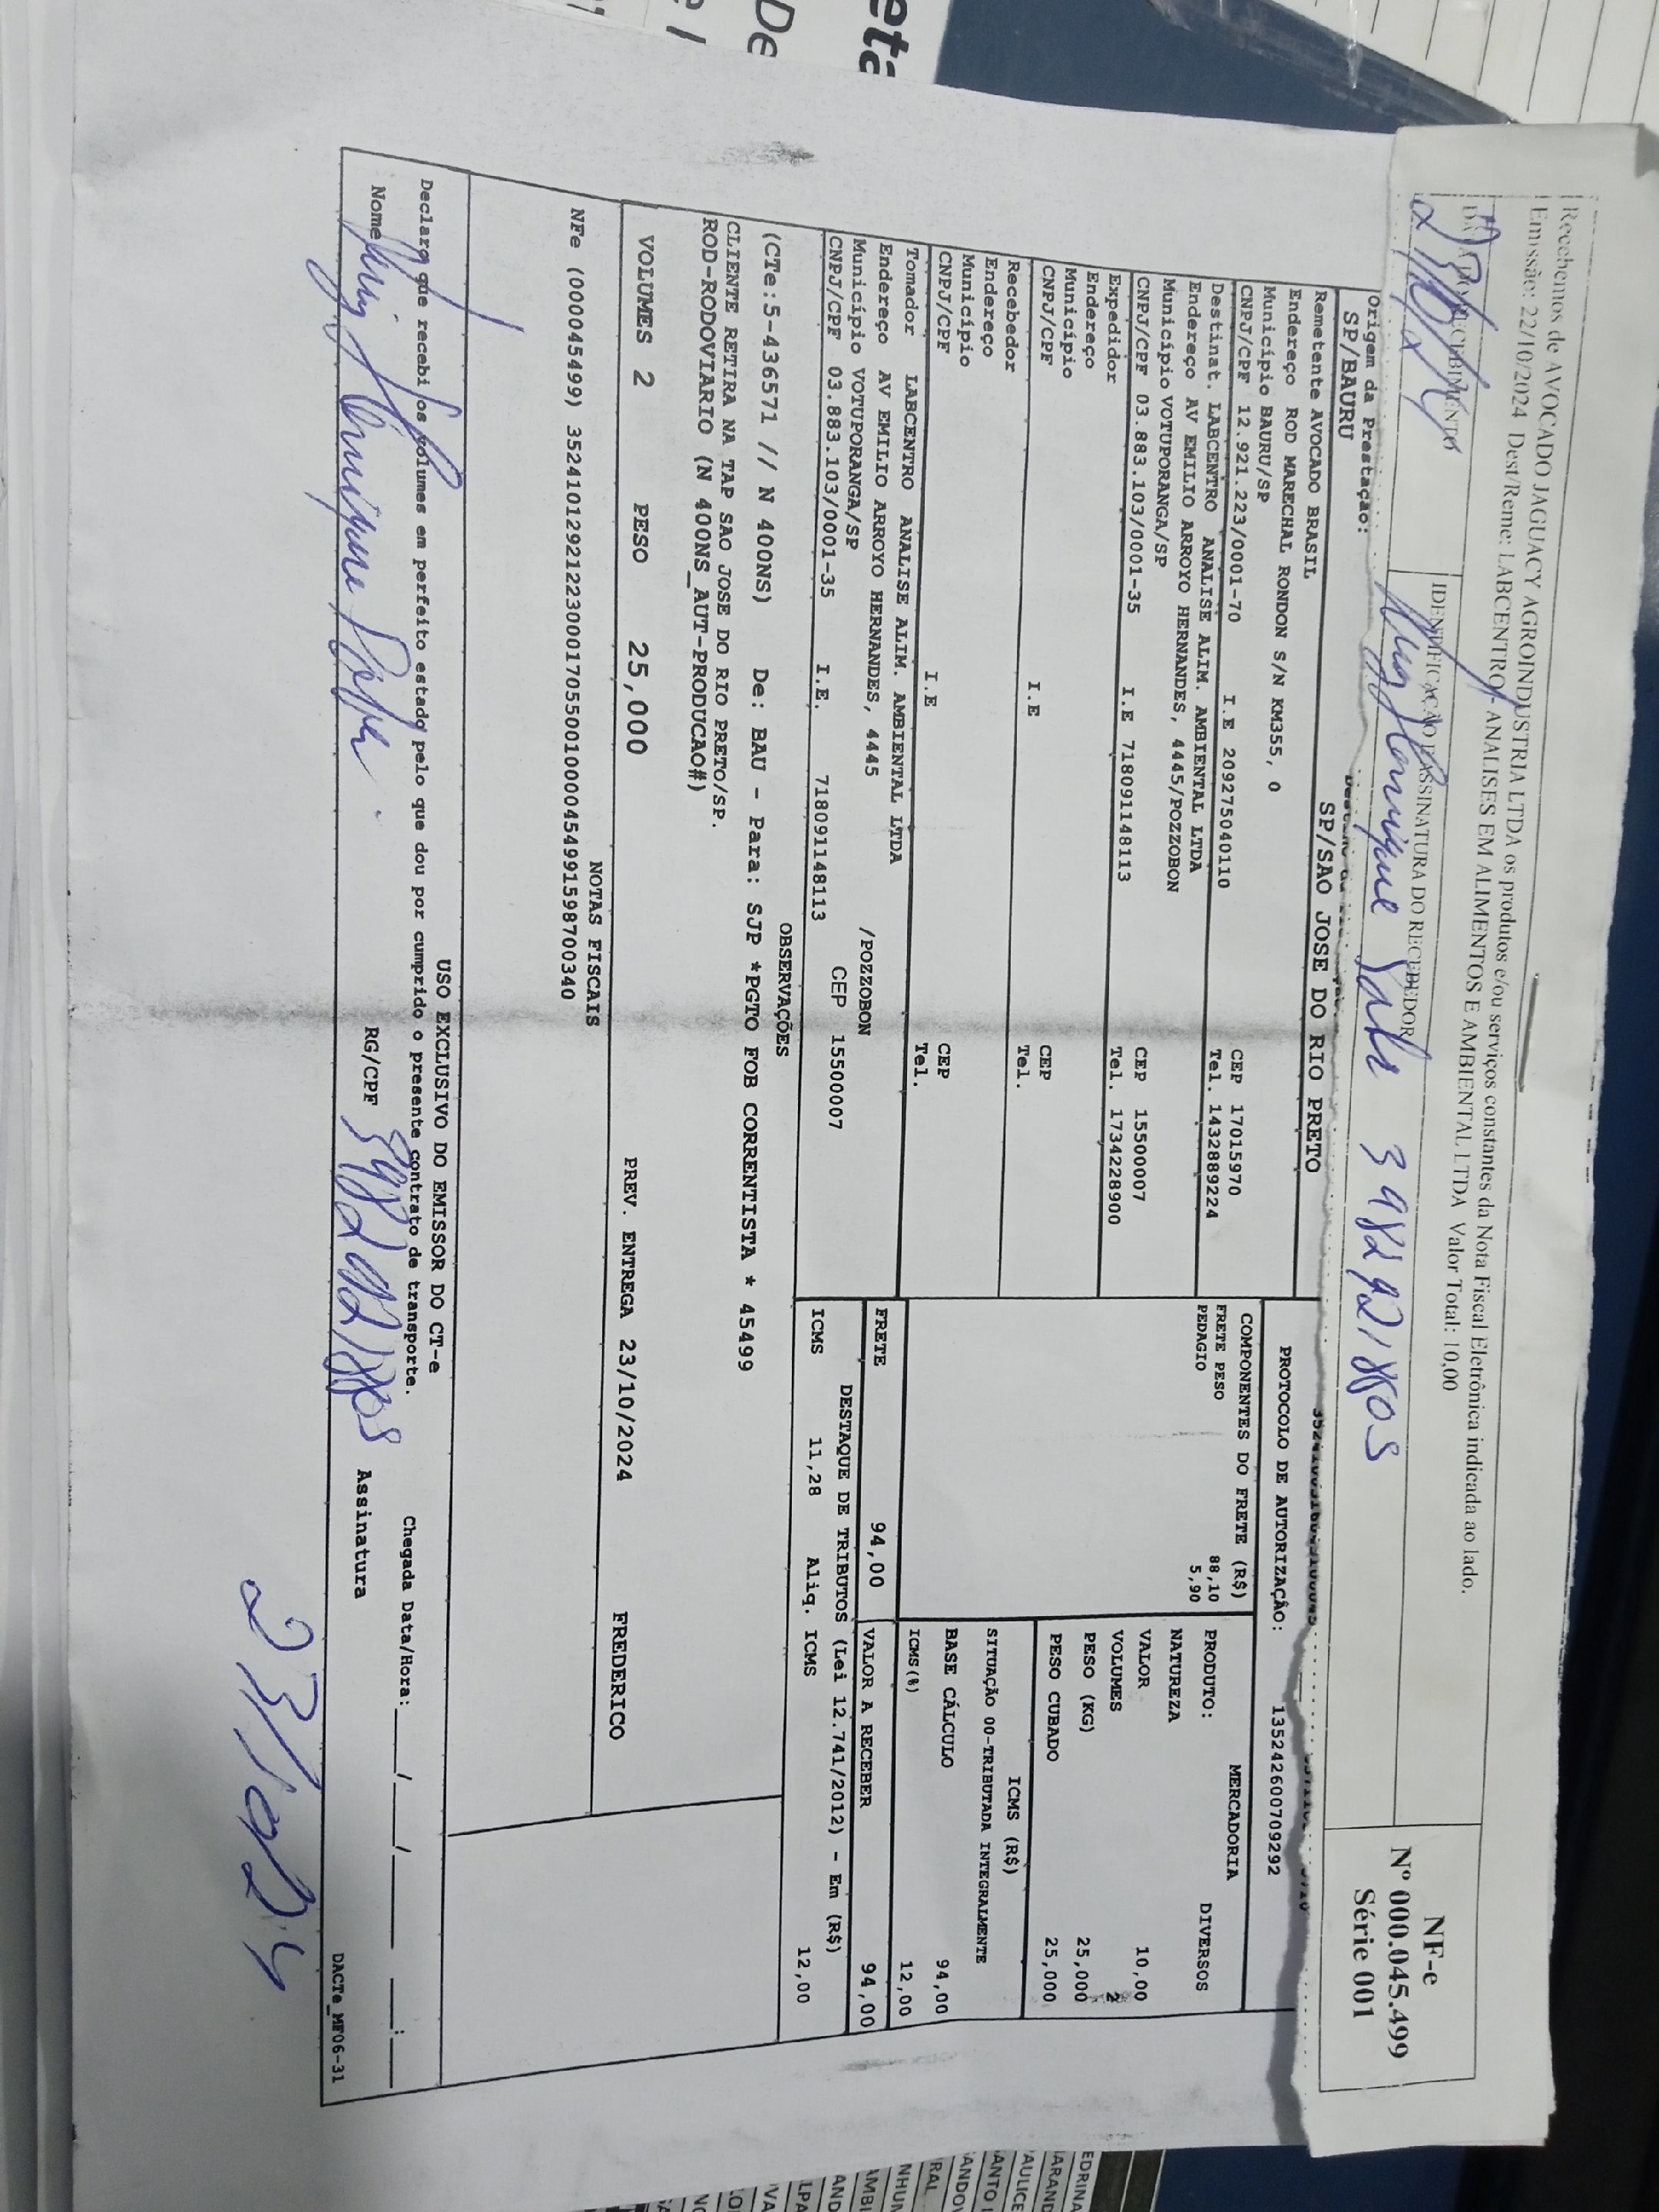 Recebemos de AVOCADO JAGUACY AGROINDUSTRIA LTDA os produtos e/ou serviços constantes da Nota Fiscal Eletrônica indicada ao lado.
Emissão: 22/10/2024 Dest/Reme: LABCENTRO - ANALISES EM ALIMENTOS E AMBIENTAL LTDA Valor Total: 10,00
IDENTIFICAÇÃO E ASSINATURA DO RECEBEDOR
Henrique
NF-e
Nº 000.045.499
Série 001
Origem da Prestação:
SP/BAURU
SP/SAO JOSE DO RIO PRETO
PROTOCOLO DE AUTORIZAÇÃO: 135242600709292
Remetente AVOCADO BRASIL
Endereço ROD MARECHAL RONDON S/N KM355, 0
Município BAURU/SP CEP 17015970
CNPJ/CPF 12.921.223/0001-70 I.E 209275040110 Tel. 1432889224
Destinat. LABCENTRO ANALISE ALIM. AMBIENTAL LTDA
Endereço AV EMILIO ARROYO HERNANDES, 4445/POZZOBON
Município VOTUPORANGA/SP CEP 15500007
CNPJ/CPF 03.883.103/0001-35 I.E 718091148113 Tel. 1734228900
Expedidor
Endereço
Município CEP
CNPJ/CPF I.E Tel.
Recebedor
Endereço
Município CEP
CNPJ/CPF I.E Tel.
Tomador LABCENTRO ANALISE ALIM. AMBIENTAL LTDA
Endereço AV EMILIO ARROYO HERNANDES, 4445 /POZZOBON
Município VOTUPORANGA/SP CEP 15500007
CNPJ/CPF 03.883.103/0001-35 I.E. 718091148113
COMPONENTES DO FRETE (R$)
FRETE PESO 88,10
PEDAGIO 5,90
MERCADORIA
PRODUTO: DIVERSOS
NATUREZA
VALOR 10,00
VOLUMES 2
PESO (KG) 25,000
PESO CUBADO 25,000
ICMS (R$)
SITUAÇÃO 00-TRIBUTADA INTEGRALMENTE
BASE CÁLCULO 94,00
ICMS(%) 12,00
FRETE 94,00 VALOR A RECEBER 94,00
DESTAQUE DE TRIBUTOS (Lei 12.741/2012) - Em (R$)
ICMS 11,28 Aliq. ICMS 12,00
OBSERVAÇÕES
(CTe:5-436571 // N 400NS) De: BAU - Para: SJP *PGTO FOB CORRENTISTA * 45499
CLIENTE RETIRA NA TAP SAO JOSE DO RIO PRETO/SP.
ROD-RODOVIARIO (N 400NS_AUT-PRODUCAO#)
VOLUMES 2 PESO 25,000 PREV. ENTREGA 23/10/2024 FREDERICO
NOTAS FISCAIS
NFe (000045499) 35241012921223000170550010000454991598700340
USO EXCLUSIVO DO EMISSOR DO CT-e
Declaro que recebi os volumes em perfeito estado pelo que dou por cumprido o presente contrato de transporte.
Chegada Data/Hora: ___/___/_____ ___:___
Nome Henrique RG/CPF Assinatura
DACTe_MF06-31
23/10/24